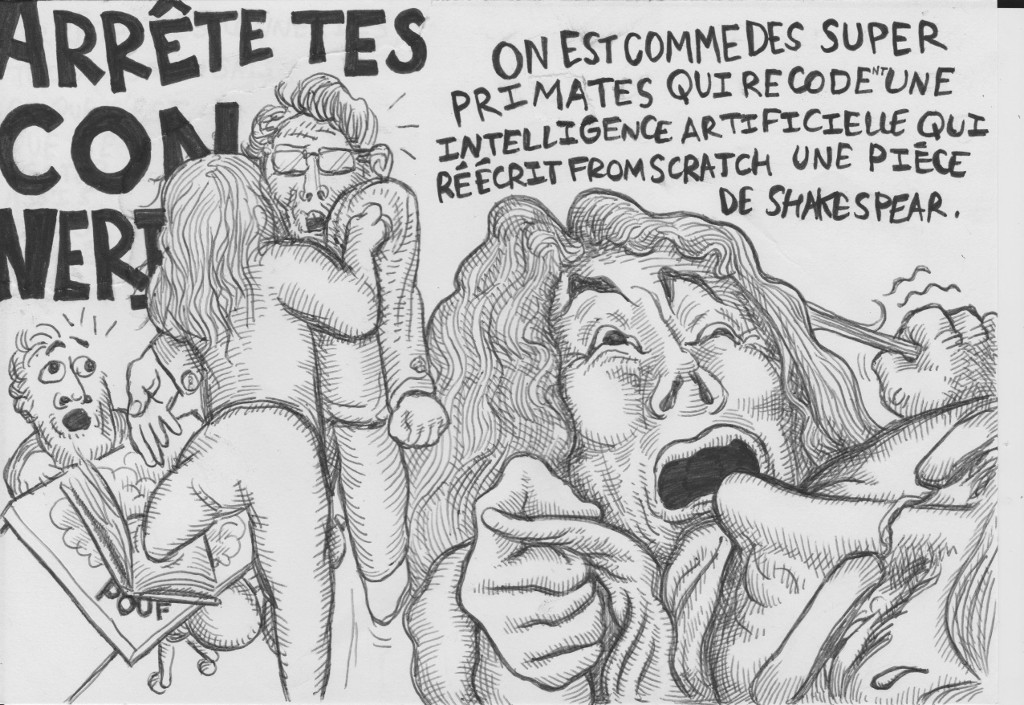 ARRÊTE TES
CON
NERI
ON EST COMME DES SUPER
PRIMATES QUI RECODENT UNE
INTELLIGENCE ARTIFICIELLE QUI
RÉÉCRIT FROM SCRATCH UNE PIÈCE
DE SHAKESPEAR.
POUF